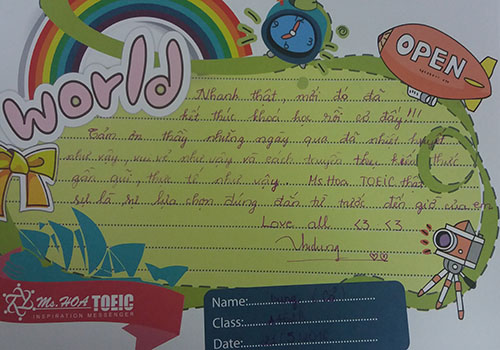 world
OPEN
Nhanh thật, mới đó đã
kết thúc khoá học rồi cơ đấy!!!
Cảm ơn thầy những ngày qua đã nhiệt huyết
như vậy, vui vẻ như vậy và cách truyền thụ kiến thức
gần gũi, thực tế như vậy. Ms.Hoa TOEIC thật
sự là sự lựa chọn đúng đắn từ trước đến giờ của em
Love all <3 <3
Nhdung
Ms. HOA TOEIC
INSPIRATION MESSENGER
Name:
Class:
Date: